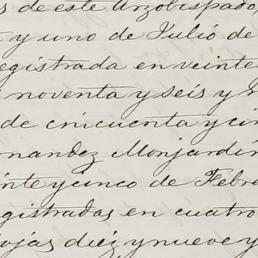 s de este Arzobispado,
y uno de Julio de
egistrada en veinte
noventa y seis y
de cnicuenta y
nandez Monjardin
inte y cinco de Febre
gistradas en cuatro
ojas diez y nueve y